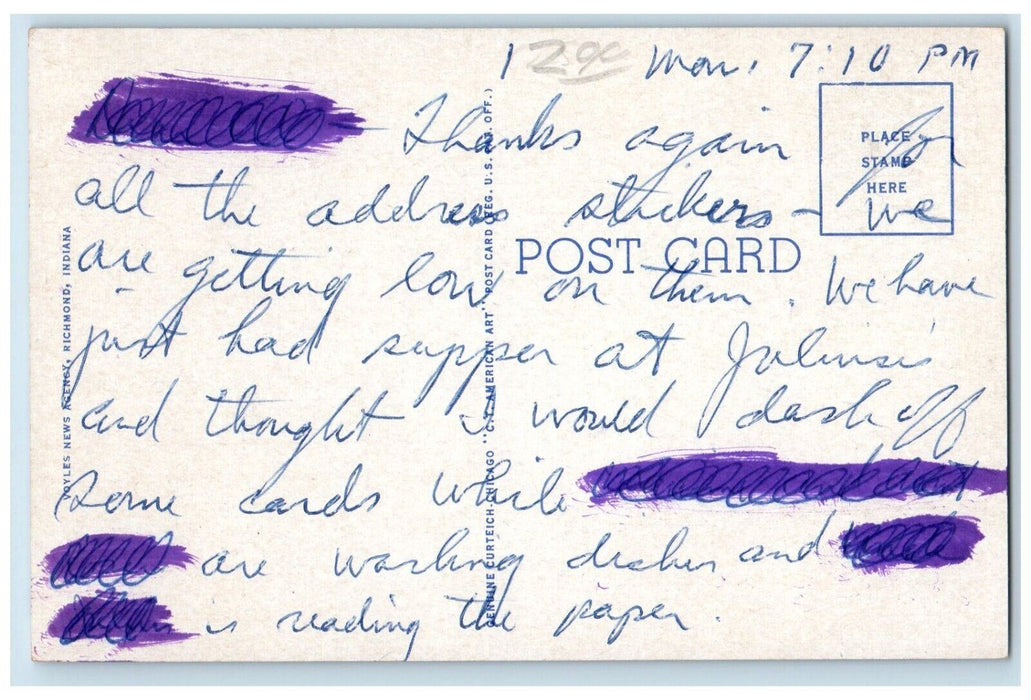 1 2.00 Mon. 7:10 PM
Thanks again for
all the address stickers - we
are getting low on them. We have
just had supper at
and thought I would dash off
some cards while
are washing dishes and
is reading the paper.
PLACE
STAMP
HERE
POST CARD
VOYLES NEWS AGENCY, RICHMOND, INDIANA
GENUINE CURTEICH-CHICAGO "C.T. AMERICAN ART" POST CARD (REG. U.S. PAT. OFF.)